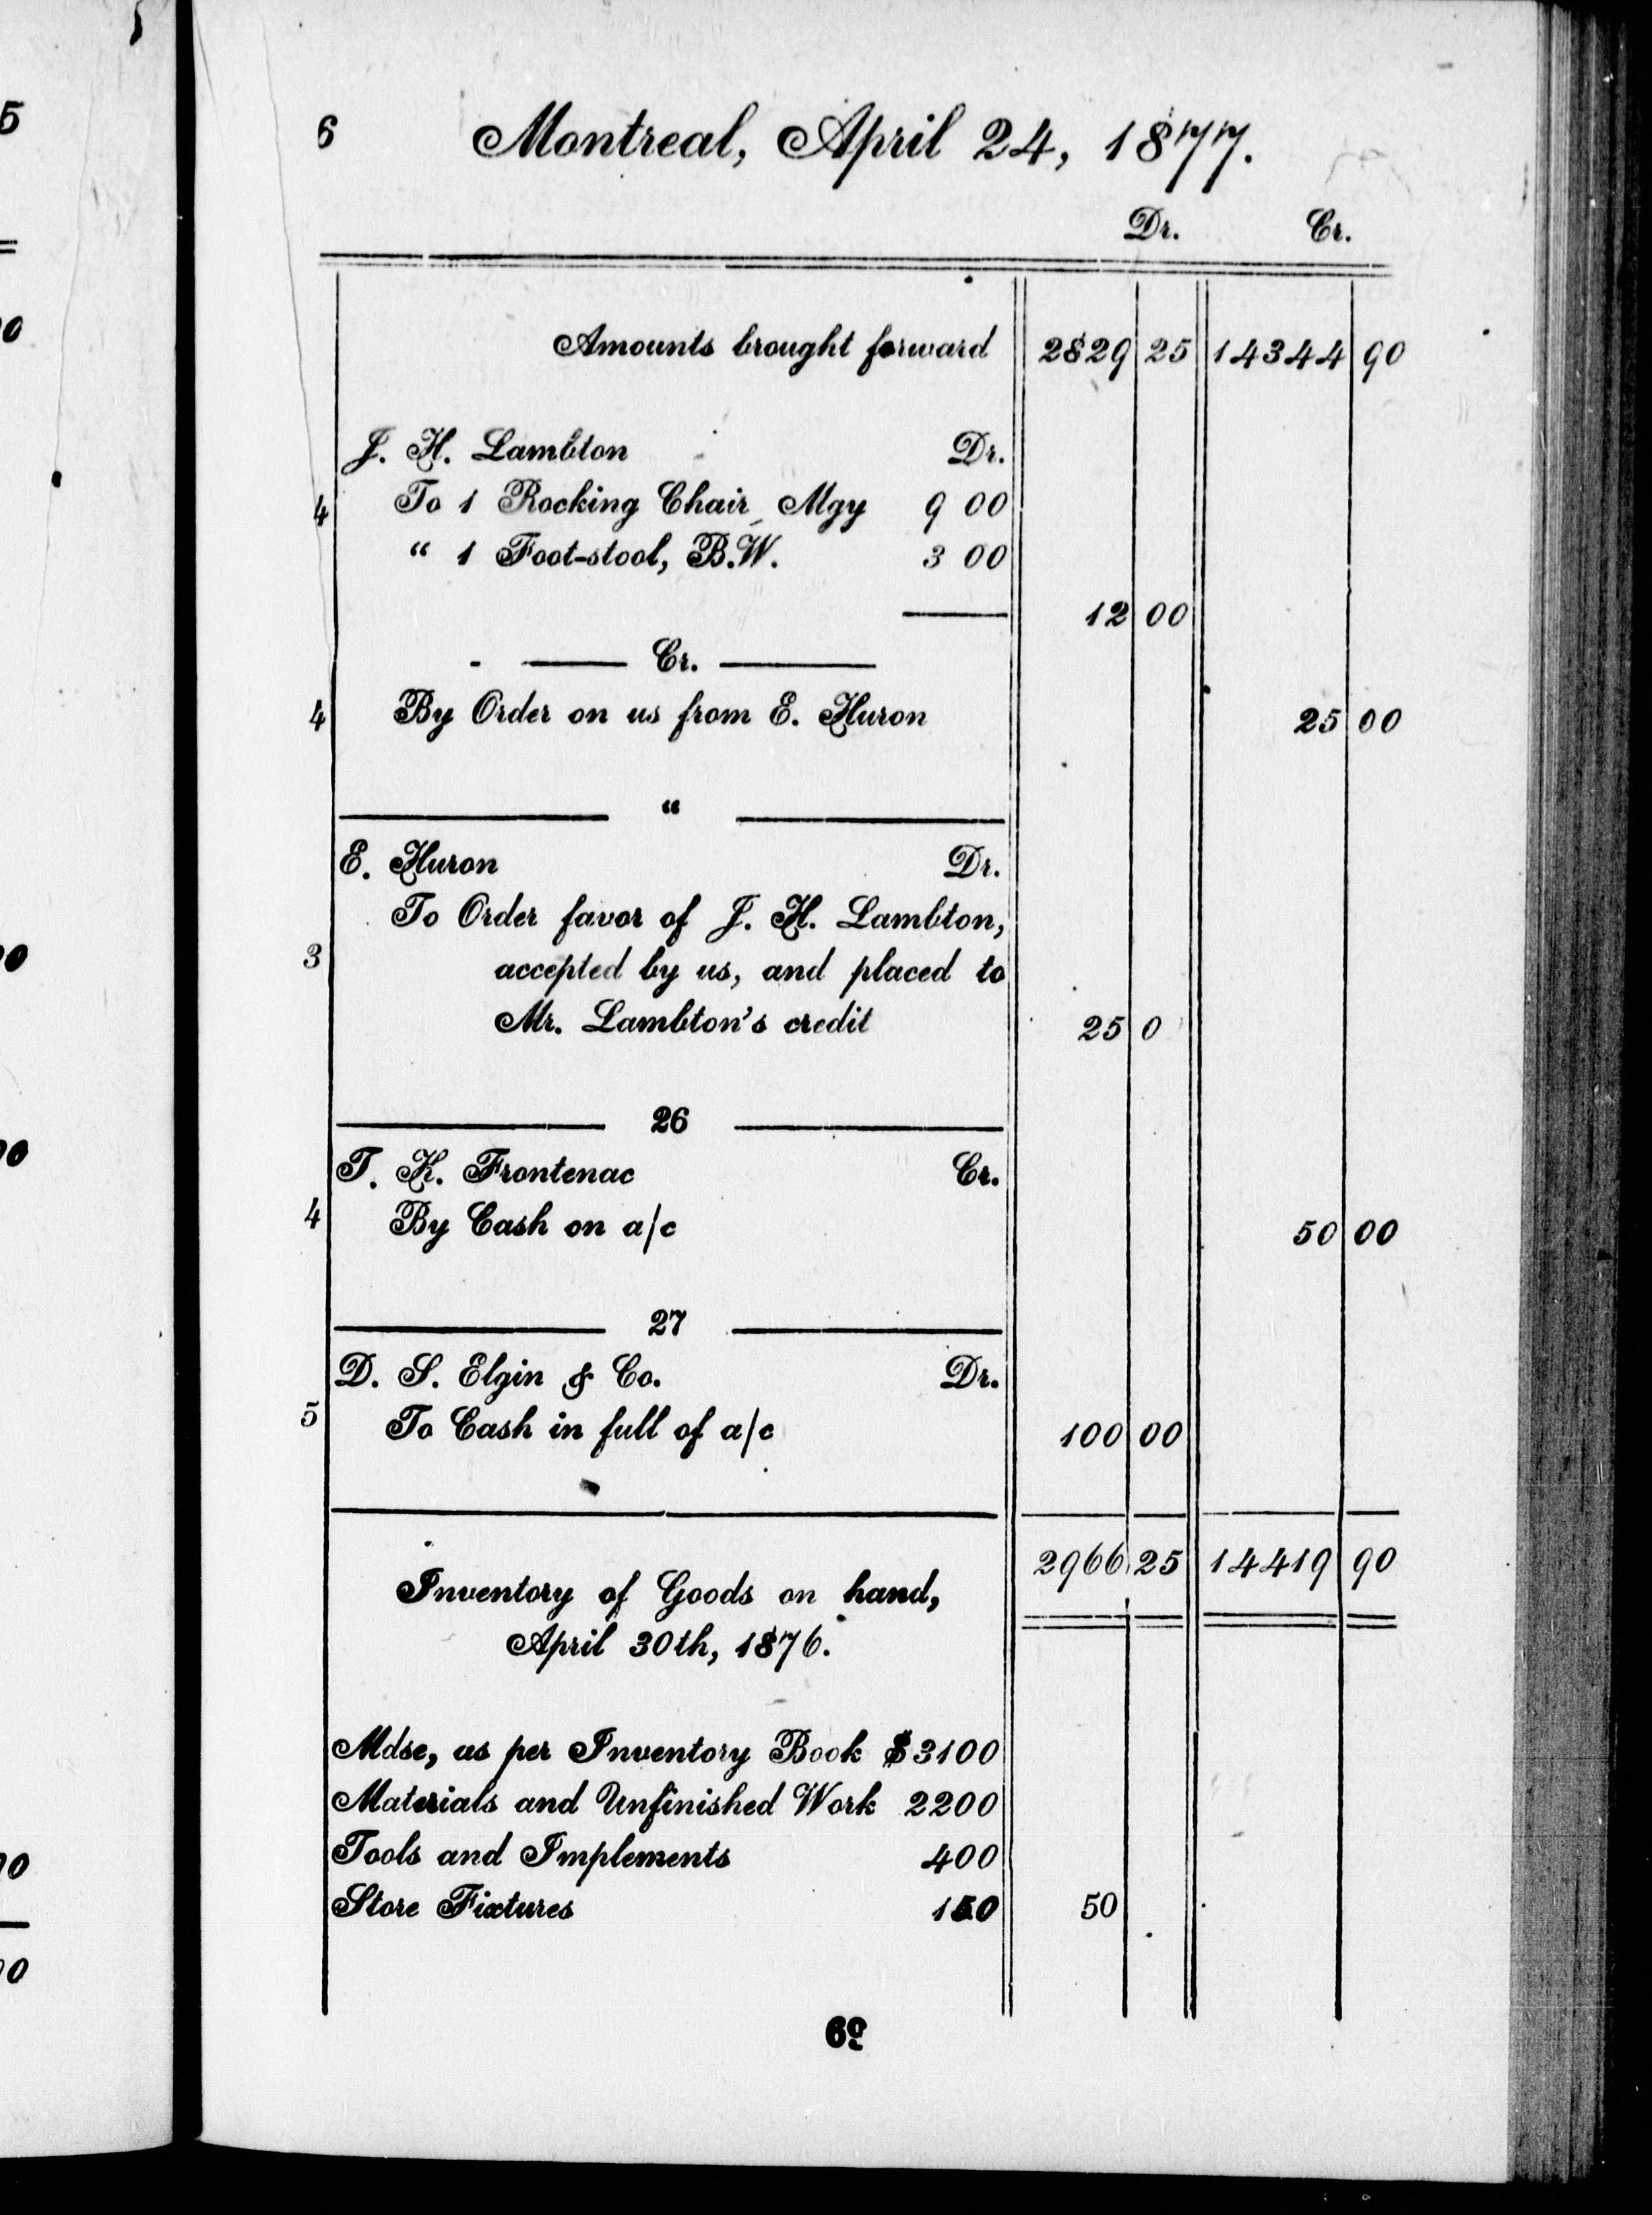 6 Montreal, April 24, 1877.
Dr. Cr.
Amounts brought forward 2829 25 14344 90
J. H. Lambton Dr.
4 To 1 Rocking Chair, Mgy 9 00
“ 1 Foot-stool, B.W. 3 00
12 00
Cr.
4 By Order on us from E. Huron 25 00
“
E. Huron Dr.
To Order favor of J. H. Lambton,
3 accepted by us, and placed to
Mr. Lambton's credit 25 0
26
T. K. Frontenac Cr.
4 By Cash on a/c 50 00
27
D. S. Elgin & Co. Dr.
5 To Cash in full of a/c 100 00
2966 25 14419 90
Inventory of Goods on hand,
April 30th, 1876.
Mdse, as per Inventory Book $3100
Materials and Unfinished Work 2200
Tools and Implements 400
Store Fixtures 150 50
69